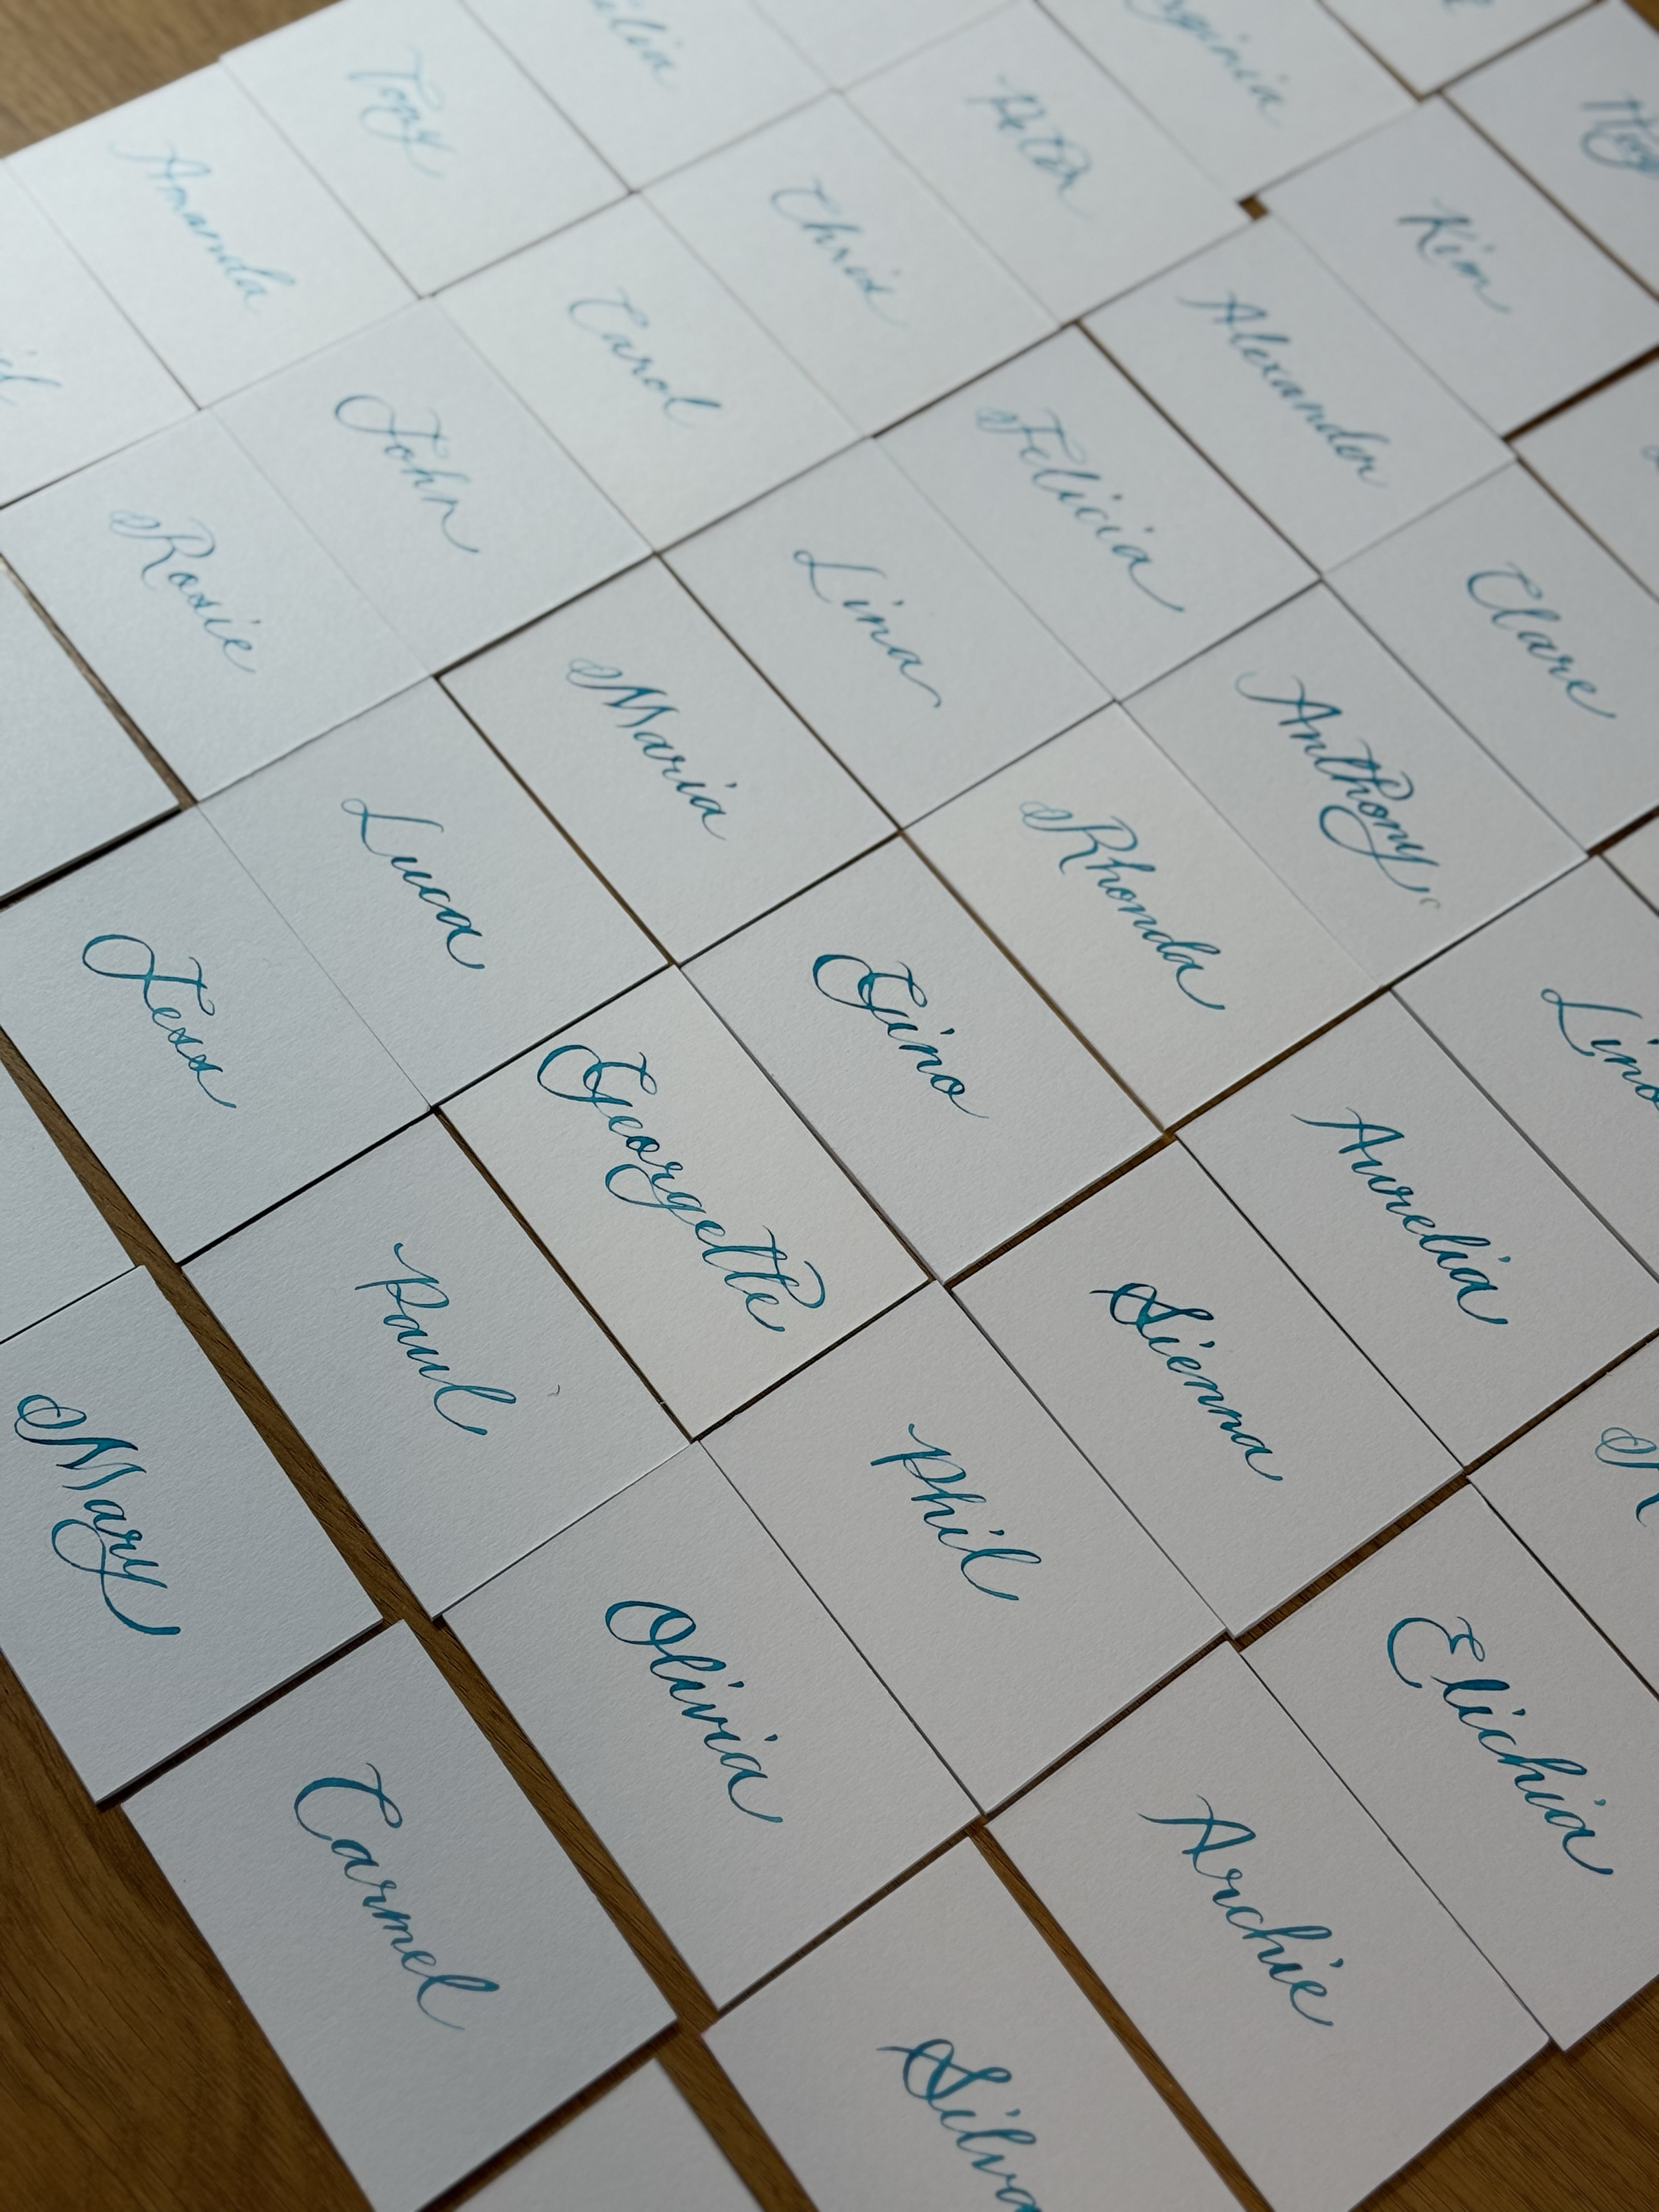 Tony
Amanda
Peter
Chris
Kim
Carol
Alexander
John
Felicia
Rosie
Lina
Clare
Maria
Anthony
Luca
Rhonda
Jess
Gino
Lino
Georgette
Aurelia
Paul
Sienna
Mary
Phil
Olivia
Elichia
Carmel
Archie